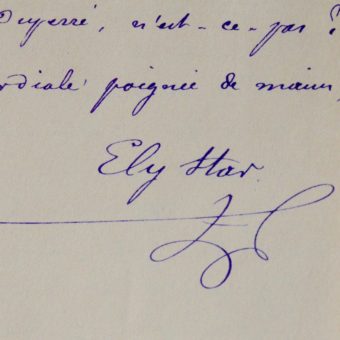 Duperré, n'est-ce-pas ?
rdiale poignée de main,
Ely Star